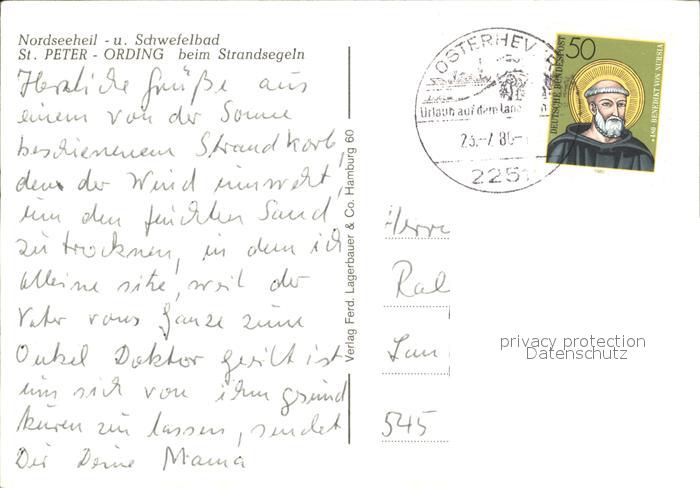 Nordseeheil - u. Schwefelbad
St. PETER - ORDING beim Strandsegeln
Herzliche Grüße aus
einem von der Sonne
beschienenem Strandkorb,
den der Wind umweht,
um den feuchten Sand
zu trocknen, in dem ich
alleine sitze, weil der
Vater vons Ganze zum
Onkel Doktor geeilt ist
um sich von ihm gesund
kuren zu lassen, sendet
Dir Deine Mama
Verlag Ferd. Lagerbauer & Co. Hamburg 60
OSTERHEV
Urlaub auf dem Lan
23.-7.80-
2251
50
DEUTSCHE BUNDESPOST
480 · BENEDIKT VON NURSIA
1980
Herrn
Ral
545
privacy protection
Datenschutz